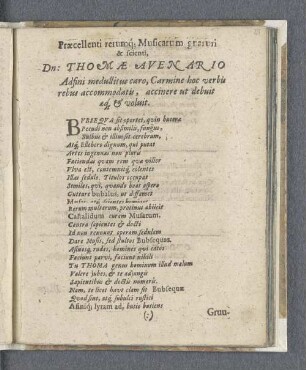 Præcellenti rerumq; Musicarum gnaruri
& scienti,
Dn: THOMÆ AVENARIO
Adfini medullitus caro, Carmine hoc verbis
rebus accommodatis, accinere ut debuit
aq, & voluit.
BUBSEQVA sit oportet, quin humo
Pecudi non absimilis, fungus,
Bulbus & illiusce cerebrum,
Atq; Elleboro dignum, qui putat
Artes ingenuas non pluris
Faciundas quam rem quæ viliter
Viva est, contemnitq; colentes
Has sedulo. Titulos occupat
Similes, qui, quando
Gutture bubalus, ut
Rerum multarum, protinus abiicit
Castalidum curem Musarum.
Contra sapientes & docti
Id non renuunt, operam sedulam
Dare Musis, sed stultus Bubsequas.
Assueta, rudes, homines qui citos
Faciunt parvi, faciunt nihili
Tu THOMA genus hominum illud malum
Valere jubes, & te adjungis
Sapientibus & doctis numeris.
Nam, te licet have clam sit Bubsequæ
Quod sint, atq; subulci rustici
Asiniq; lyram ad, boves
(:)
Gruu-